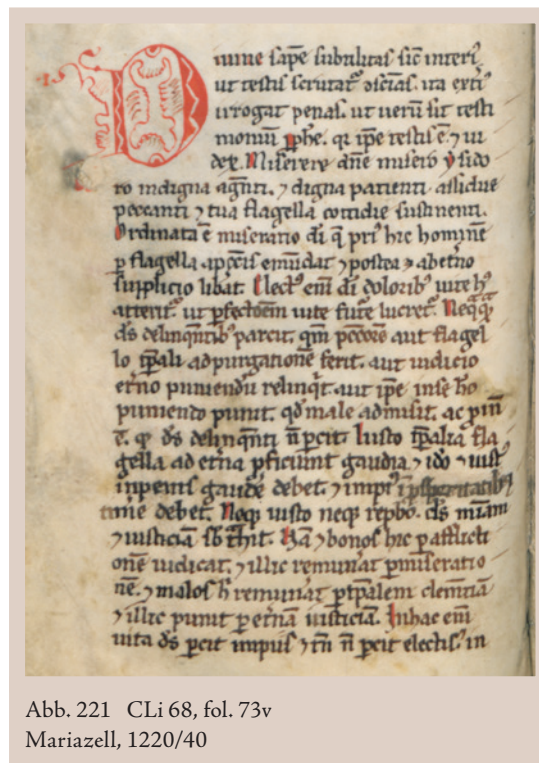 iuine sepe subtilitas sic interi
ut testis scrutat᷑ ɔsciás. ita exti
irrogat penas. ut uerū sit testi
moniū ꝓphe. qꝛ ipe testis ē. ⁊ iu
dex. Miserere dñe misero
ro indigna agenti. ⁊ digna patienti. assidue
peccanti ⁊ tua flagella cottidie sustinenti.
Ordinata ē miseratio di q̄ pri hic hominē
ꝑ flagella a emūdat ⁊ postea ab et̄no
supplicio libat. Elect᷒ eni di dolorib᷒ uite h᷒
atterit᷑. ut ꝑfectōem uite future lucret᷑. Neqq̄
ds delinquentib᷒ parcit. qm̄ aut flagel
lo tp̄ali ad purgationē ferit. aut iudicio
et̄no puniendū relinqt. aut ipe in se hō
puniendo punit. qd male admisit. ac
ē. qꝛ ds delinquenti ñ pcit. Iusto tp̄alia fla
gella ad et̄na ꝑficiunt gaudia. ⁊ ido ⁊ iust᷒
in penis gaudē debet. ⁊ impi᷒
time debet. Neqꝫ iusto neqꝫ repbo. ds miām
⁊ iusticiā Nā ⁊ bonos hic ꝑ afflicti
onē iudicat. ⁊ illic remunat ꝑ miseratio
nē. ⁊ malos h remunat ꝑ tp̄alem clemtiā
⁊ illic punit ꝑ et̄nā iusticiā. In hac eni
uita ds pcit impiis ⁊ tñ ñ pcit electis. in
Abb. 221 CLi 68, fol. 73v
Mariazell, 1220/40